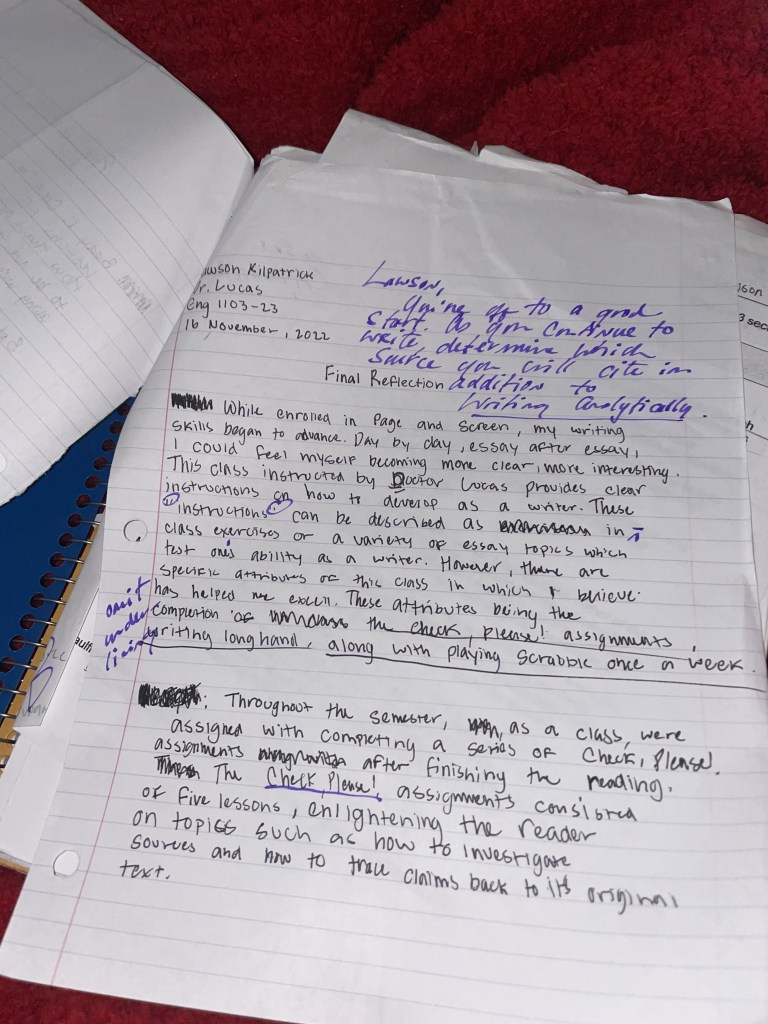 awson Kilpatrick
r. Lucas
Eng 1103-23
16 November, 2022
Lawson,
Going off to a good
start. As you continue to
write, determine which
source you will cite in
addition to
Writing Analytically.
Final Reflection
While enrolled in Page and Screen, my writing
skills began to advance. Day by day, essay after essay,
I could feel myself becoming more clear, more interesting.
This class instructed by Doctor Lucas provides clear
instructions on how to develop as a writer. These
instructions can be described as in
class exercises or a variety of essay topics which
test one's ability as a writer. However, there are
specific attributes of this class in which I believe
has helped me excell. These attributes being the
completion of the Check, Please! assignments,
writing longhand, along with playing Scrabble once a week.
omit
under
lining
Throughout the semester, as a class, were
assigned with completing a series of Check, Please!
assignments after finishing the reading.
The Check, Please! assignments consisted
of five lessons, enlightening the reader
on topics such as how to investigate
sources and how to trace claims back to it's original
text.